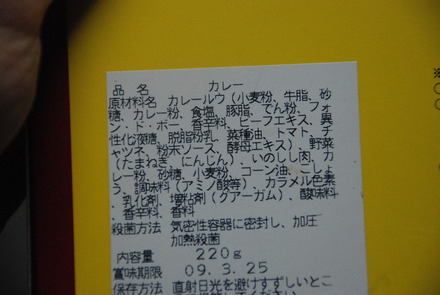 品 名 カレー
原材料名 カレールウ(小麦粉、牛脂、砂
糖、カレー粉、食塩、豚脂、でん粉、フォ
ン・ド・ボー、香辛料、ビーフエキス、異
性化液糖、脱脂粉乳、菜種油、トマト、チ
ャツネ、粉末ソース、酵母エキス)、野菜
(たまねぎ、にんじん)、いのしし肉、カ
レー粉、砂糖、小麦粉、コーン油、こしょ
う、調味料(アミノ酸等)、カラメル色素
、乳化剤、増粘剤(グアーガム)、酸味料
、香辛料、香料
殺菌方法 気密性容器に密封し、加圧
加熱殺菌
内容量 220g
賞味期限 09.3.25
保存方法 直射日光を避けすずしいとこ